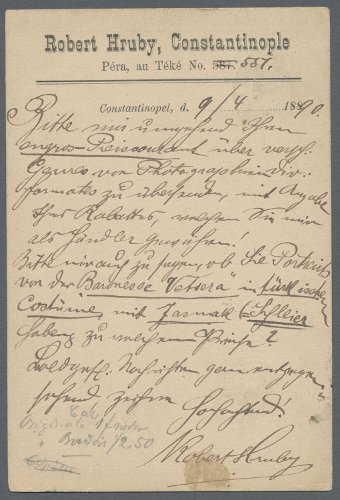 Robert Hruby, Constantinople
Péra, au Téké No. 587. 557.
Constantinopel, d. 9/4 1890.
Bitte mir umgehend Ihren
engros-Preiscourant über versch.
Genres von Photographien div.
Formates zu übersenden, mit Angabe
Ihres Rabattes, welchen Sie mir
als Händler gewähren!
Bitte mir auch zu sagen, ob Sie Portraits
von der Baronesse Vetsera" in türkischem
Costüme, mit Jasmak (Schleier
haben, zu welchem Preise?
Baldgefl. Nachrichten gerne entgegen-
sehend zeichne
Hochachtend!
Robert Hruby
Originale
2.50